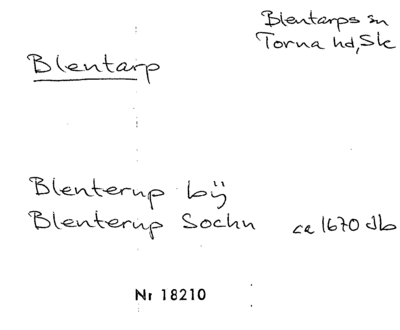 Blentarps sn
Torna hd, Sk
Blentarp
Blenterup bÿ
Blenterup Sochn ca 1670 db
Nr 18210